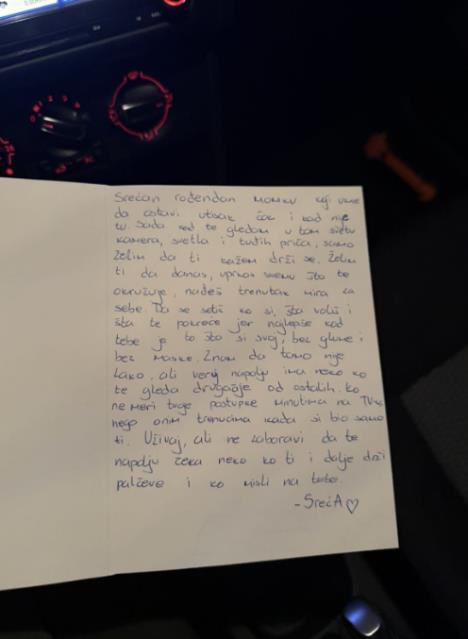 Srećan rođendan momku koji ume
da ostavi utisak čak i kad nije
tu. Sada kad te gledam u tom svetu
kamera, svetla i tuđih priča, samo
želim da ti kažem drži se. Želim
ti da danas, uprkos svemu što te
okružuje, nađeš trenutak mira za
sebe. Da se setiš ko si, šta voliš i
šta te pokreće jer najlepše kod
tebe je to što si svoj, bez glume i
bez maske. Znam da tamo nije
lako, ali veruj napolju ima neko ko
te gleda drugačije od ostalih. Ko
ne meri tvoje postupke minutima na TVu,
nego onim trenucima kada si bio samo
ti. Uživaj, ali ne zaboravi da te
napolju čeka neko ko ti i dalje drži
palčeve i ko misli na tebe.
- SrećA ♡